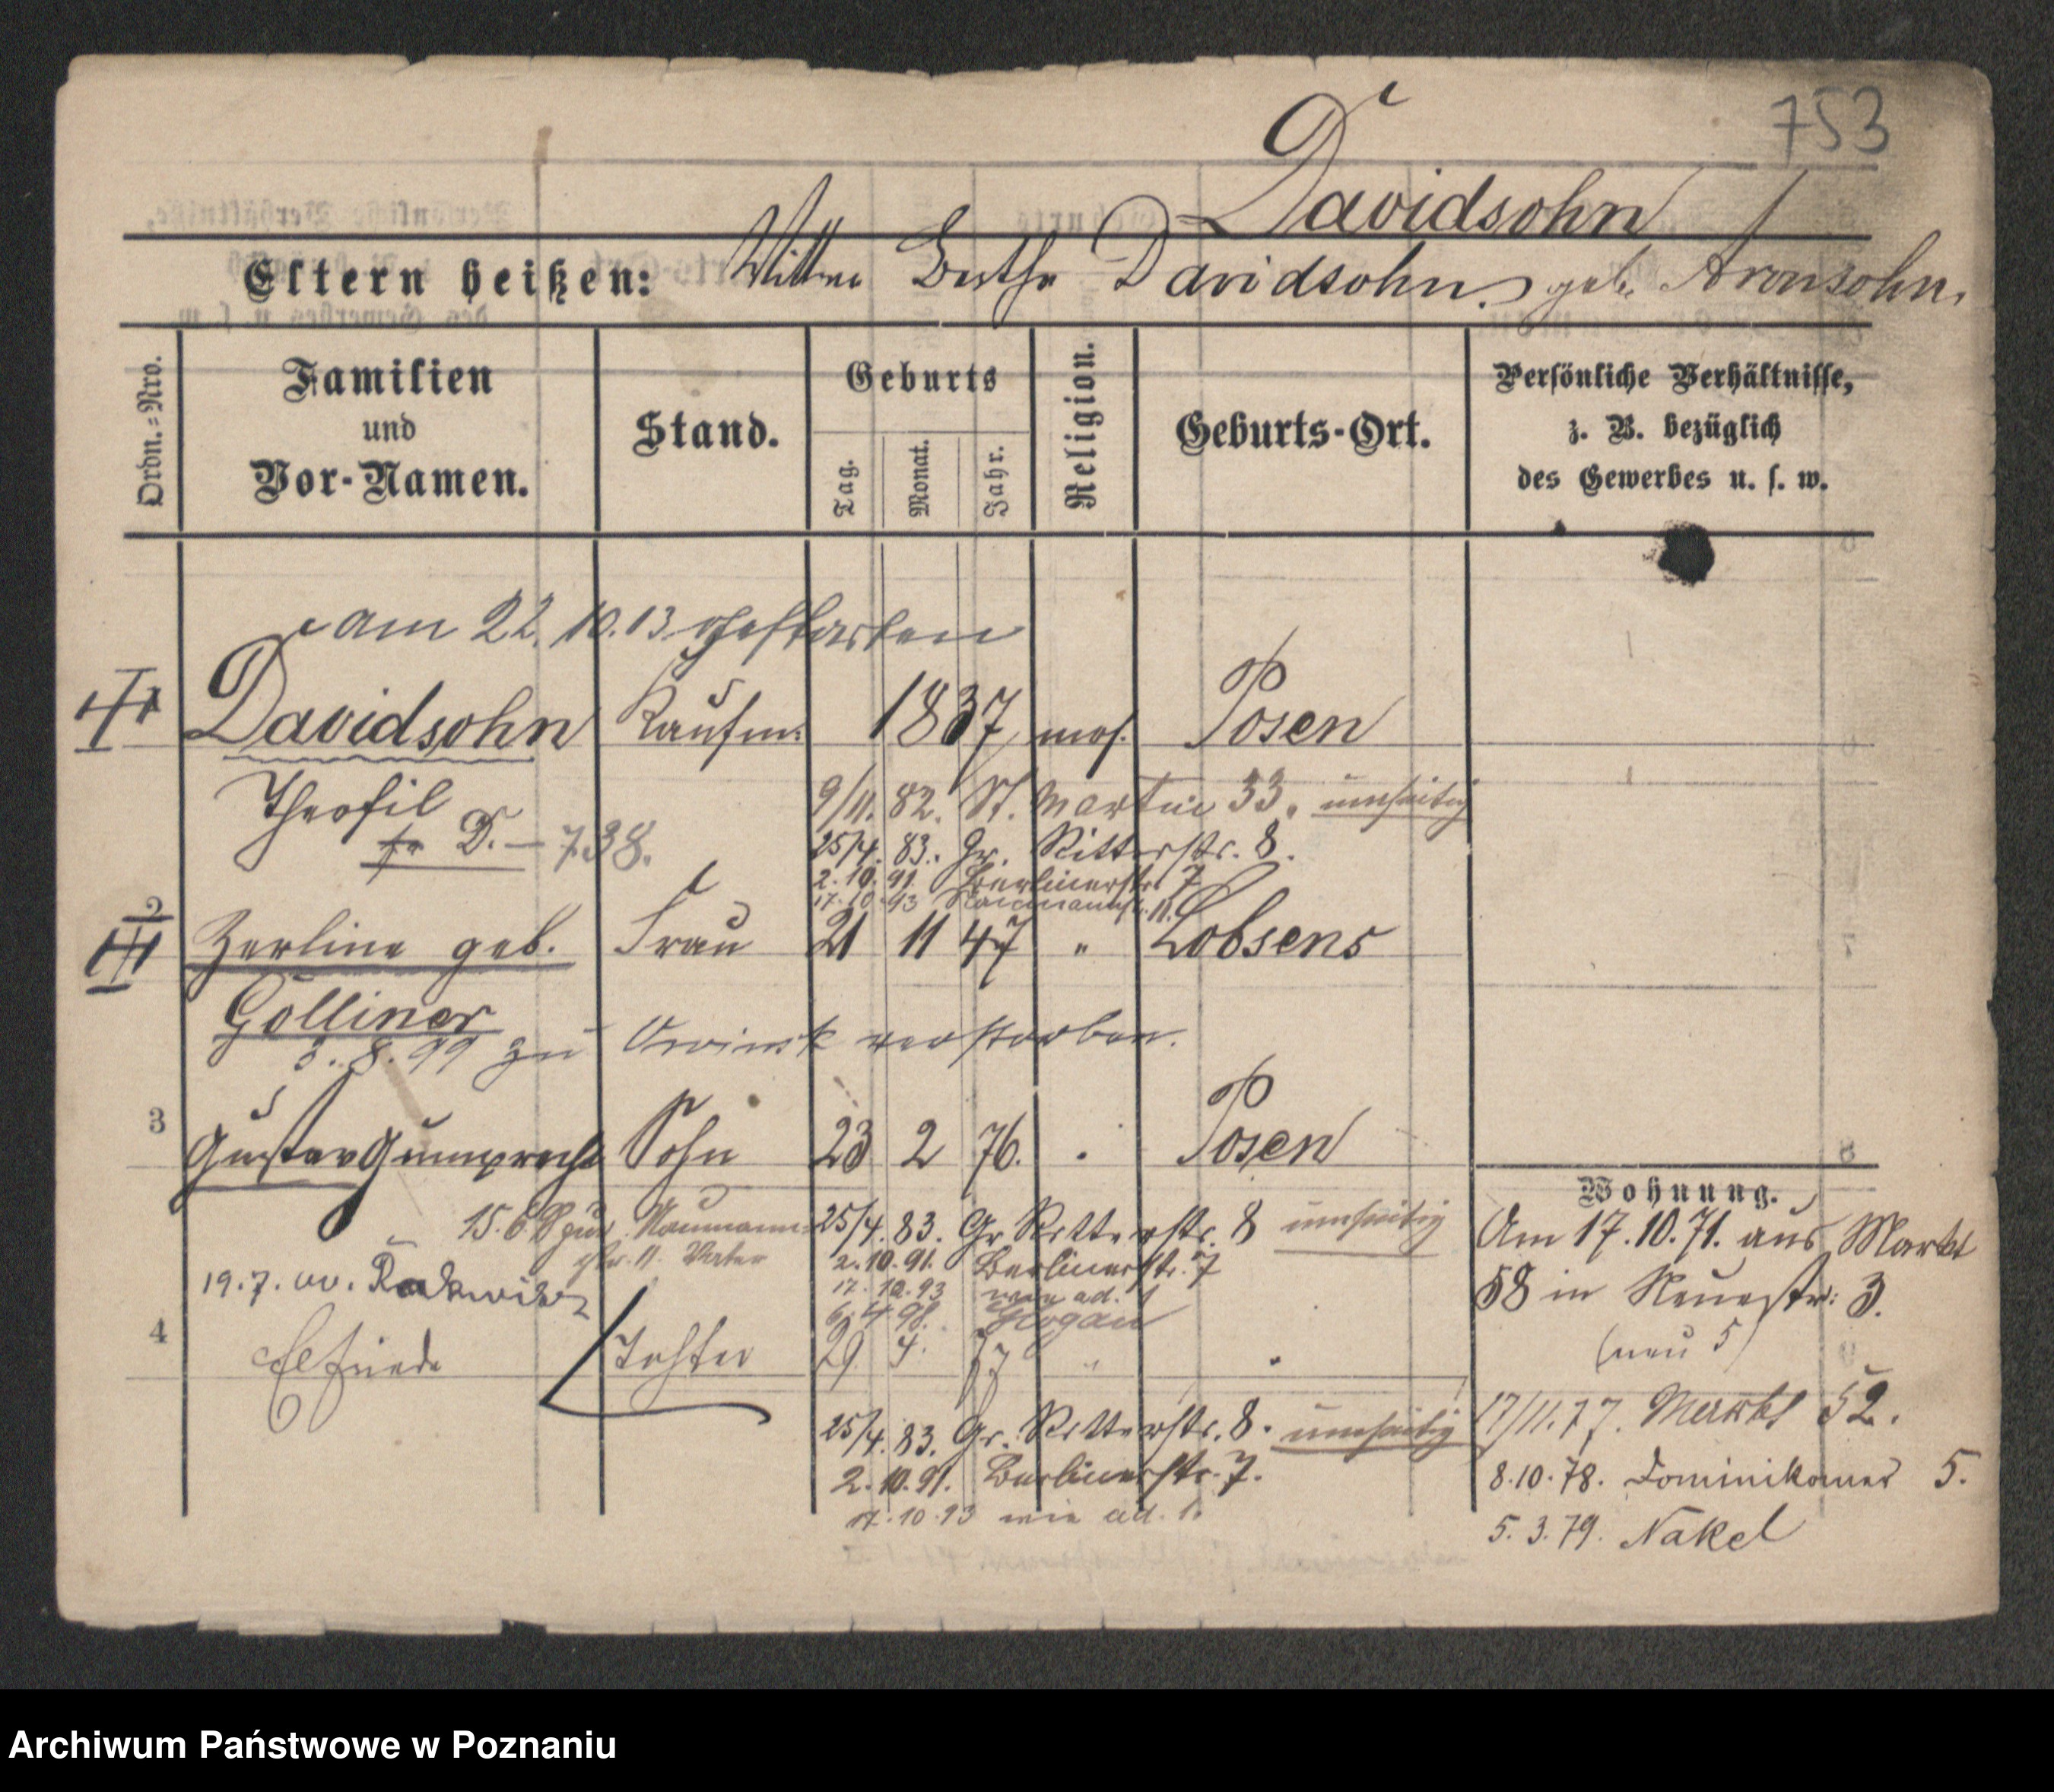 753
Davidsohn
Eltern heißen: Wittwe Berthe Davidsohn geb. Aronsohn.
Ordn.-Nro.
Familien
und
Vor-Namen.
Stand.
Geburts
Tag.
Monat.
Jahr.
Religion.
Geburts-Ort.
Persönliche Verhältnisse,
z. B. bezüglich
des Gewerbes u. s. w.
am 22.10.13 gestorben
Davidsohn Kaufm. 1837 mos. Posen
Theofil 9/11. 82. St. Martin 33. umseitig
D. — 738. 25/4. 83. Gr. Ritterstr. 8.
2.10.91 Berlinerstr. 7
17.10.93 Naumannstr. 11.
2 Zerline geb. Frau 21 11 47 " Lobsens
Golliner
3.8.99 zu verstorben.
3 Gustav Gumprecht Sohn 23 2 76. Posen
Naumann- 25/4. 83. Gr. Ritterstr. 8 umseitig
str. 11. Vater 2.10.91. Berlinerstr. 7
19.7. 17.10.93 wie ad. 1
6.4.98. Glogau
4 Elfriede Tochter 29. 4. 77 "
25/4. 83. Gr. Ritterstr. 8. umseitig
2.10.91. Berlinerstr. 7.
17.10.93 wie ad. 1.
Wohnung.
Am 17.10.71. aus Markt
58 in Neuestr: 3.
(neu 5)
17/11.77. Markt 52.
8.10.78. Dominikaner 5.
5.3.79. Nakel
Archiwum Państwowe w Poznaniu